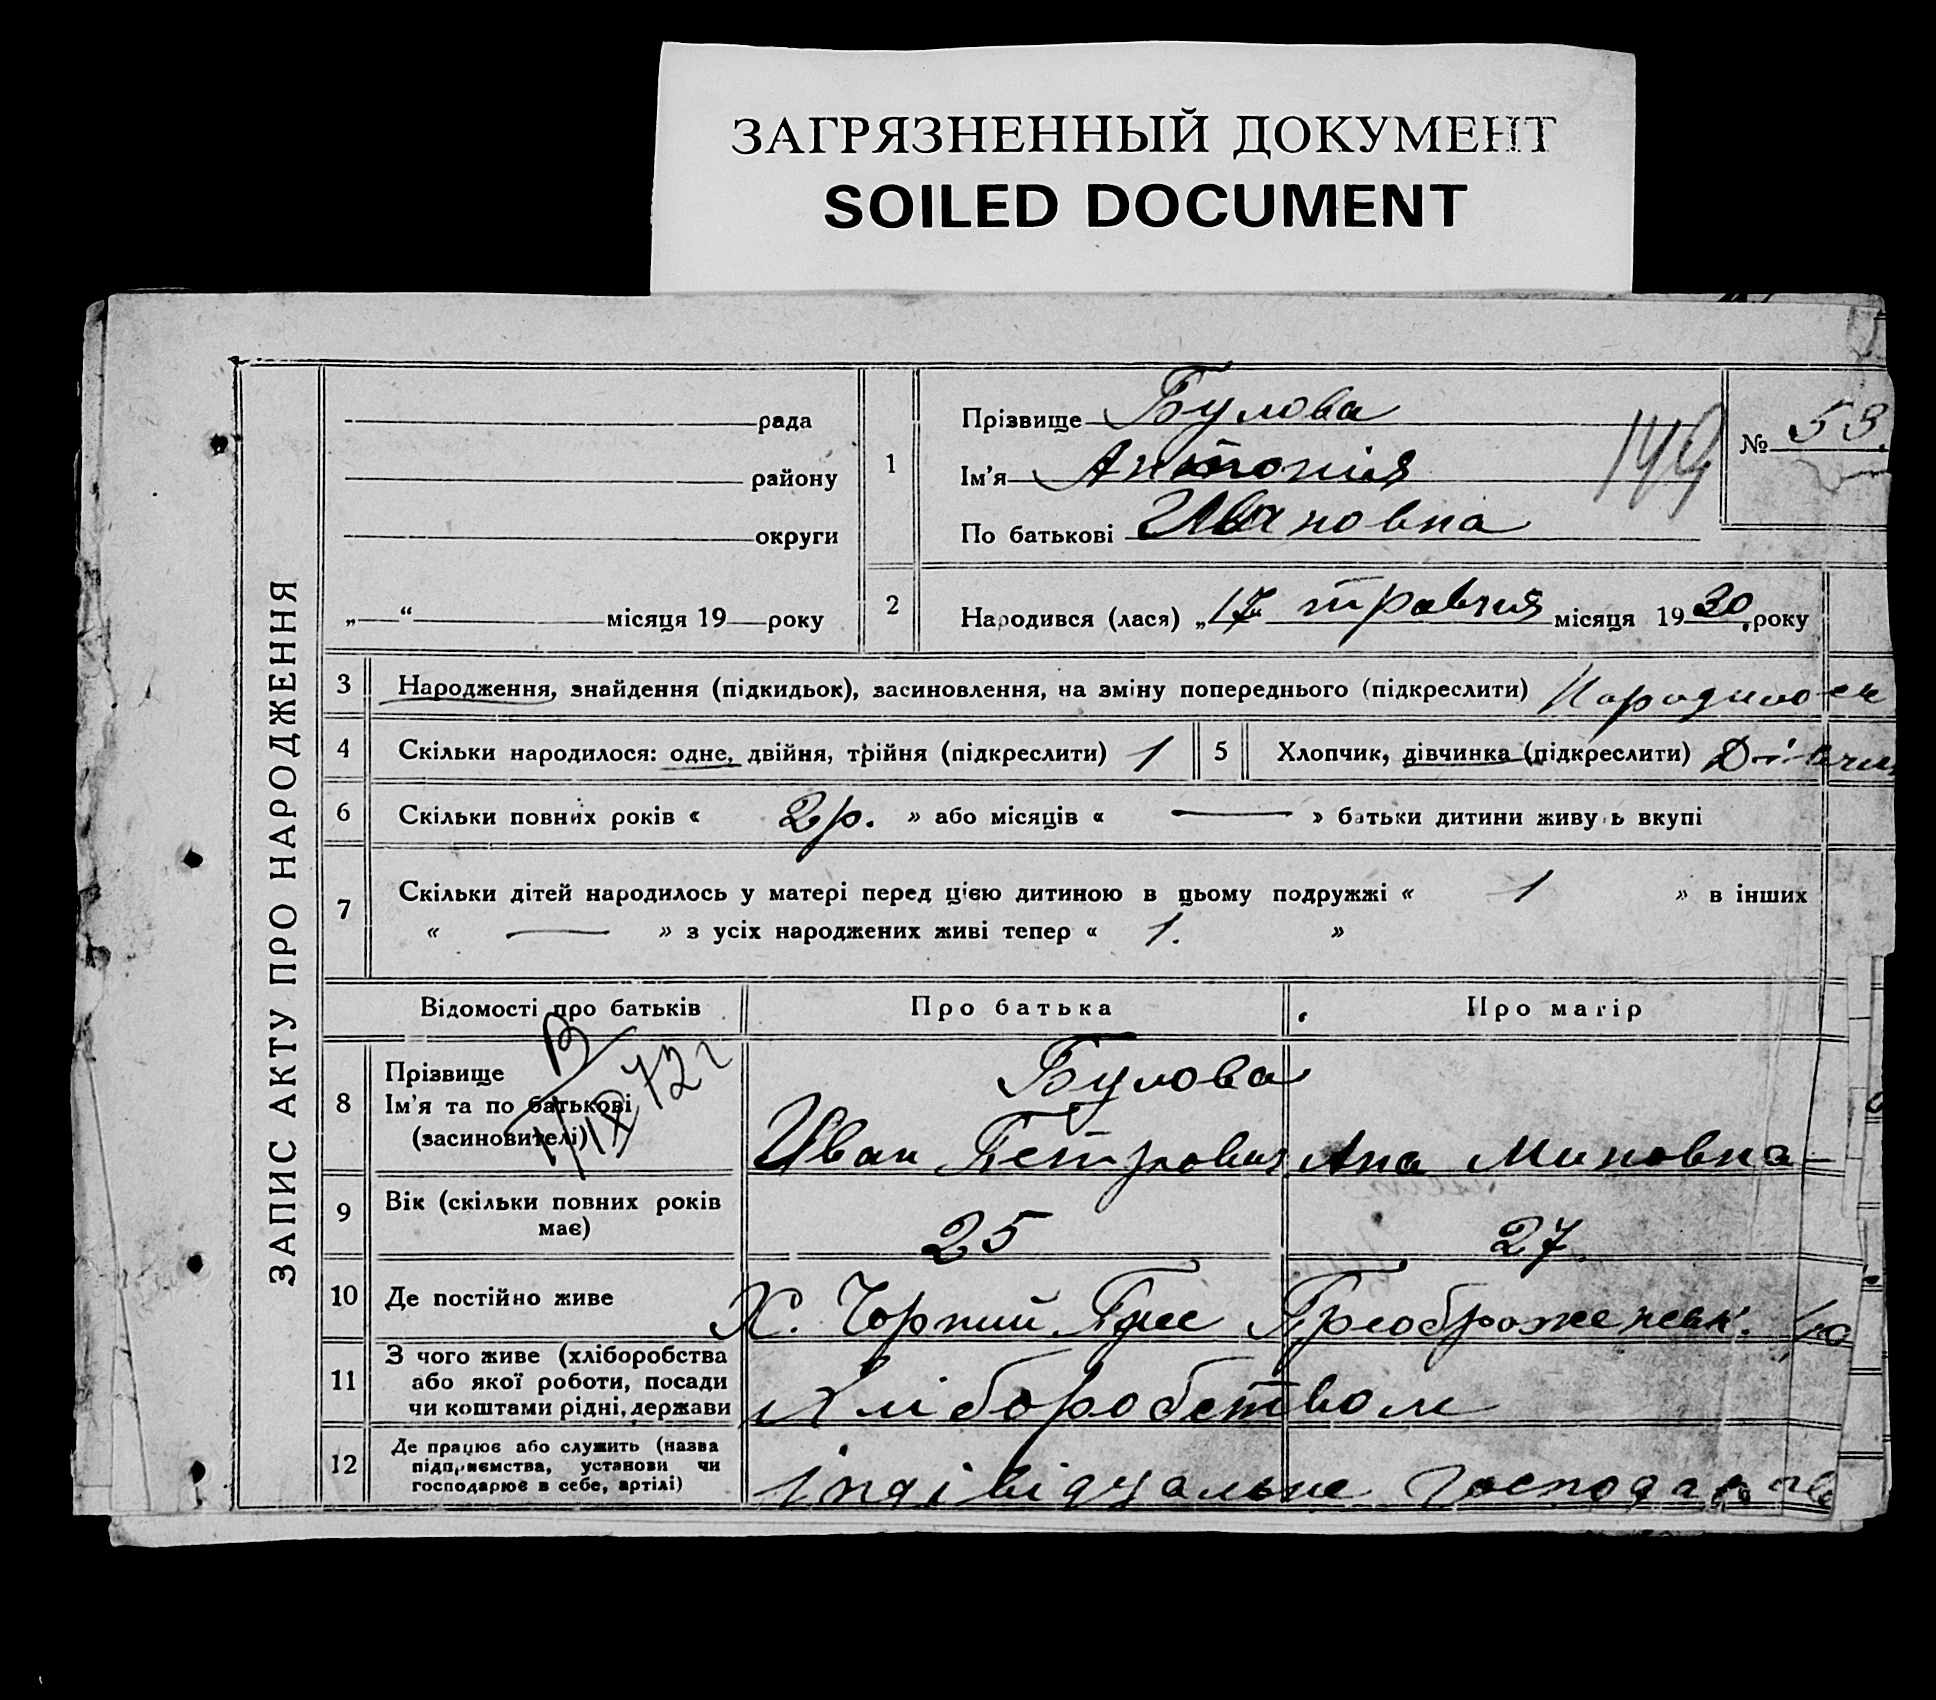 ЗАГРЯЗНЕННЫЙ ДОКУМЕНТ
SOILED DOCUMENT
ЗАПИС АКТУ ПРО НАРОДЖЕННЯ
рада
району
округи
„ “ місяця 19 року
1
Прізвище Булова
Ім'я Антонія
По батькові Ивановна
149
№ 53.
2
Народився (лася) „17 травня місяця 1930 року
3 Народження, знайдення (підкидьок), засиновлення, на зміну попереднього (підкреслити) Народилось
4 Скільки народилося: одне, двійня, трійня (підкреслити) 1
5 Хлопчик, дівчинка (підкреслити) Дівчин
6 Скільки повних років « 2 р. » або місяців « — » батьки дитини живуть вкупі
7 Скільки дітей народилось у матері перед цією дитиною в цьому подружжі « 1 » в інших
« — » з усіх народжених живі тепер « 1. »
Відомості про батьків Про батька Про матір
8 Прізвище
Ім'я та по батькові
(засиновителі)
72 г
Булова
Иван Петрович Ана Миновна
9 Вік (скільки повних років
має)
25 27
10 Де постійно живе Х. Чорний Преображенськ.
11 З чого живе (хліборобства
або якої роботи, посади
чи коштами рідні, держави
Хліборобством
12 Де працює або служить (назва
підприємства, установи чи
господарює в себе, артілі)
індівідуальне господарств